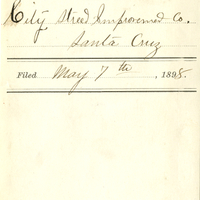 City Street Improvement Co.
Santa Cruz
Filed May 7th, 1898.